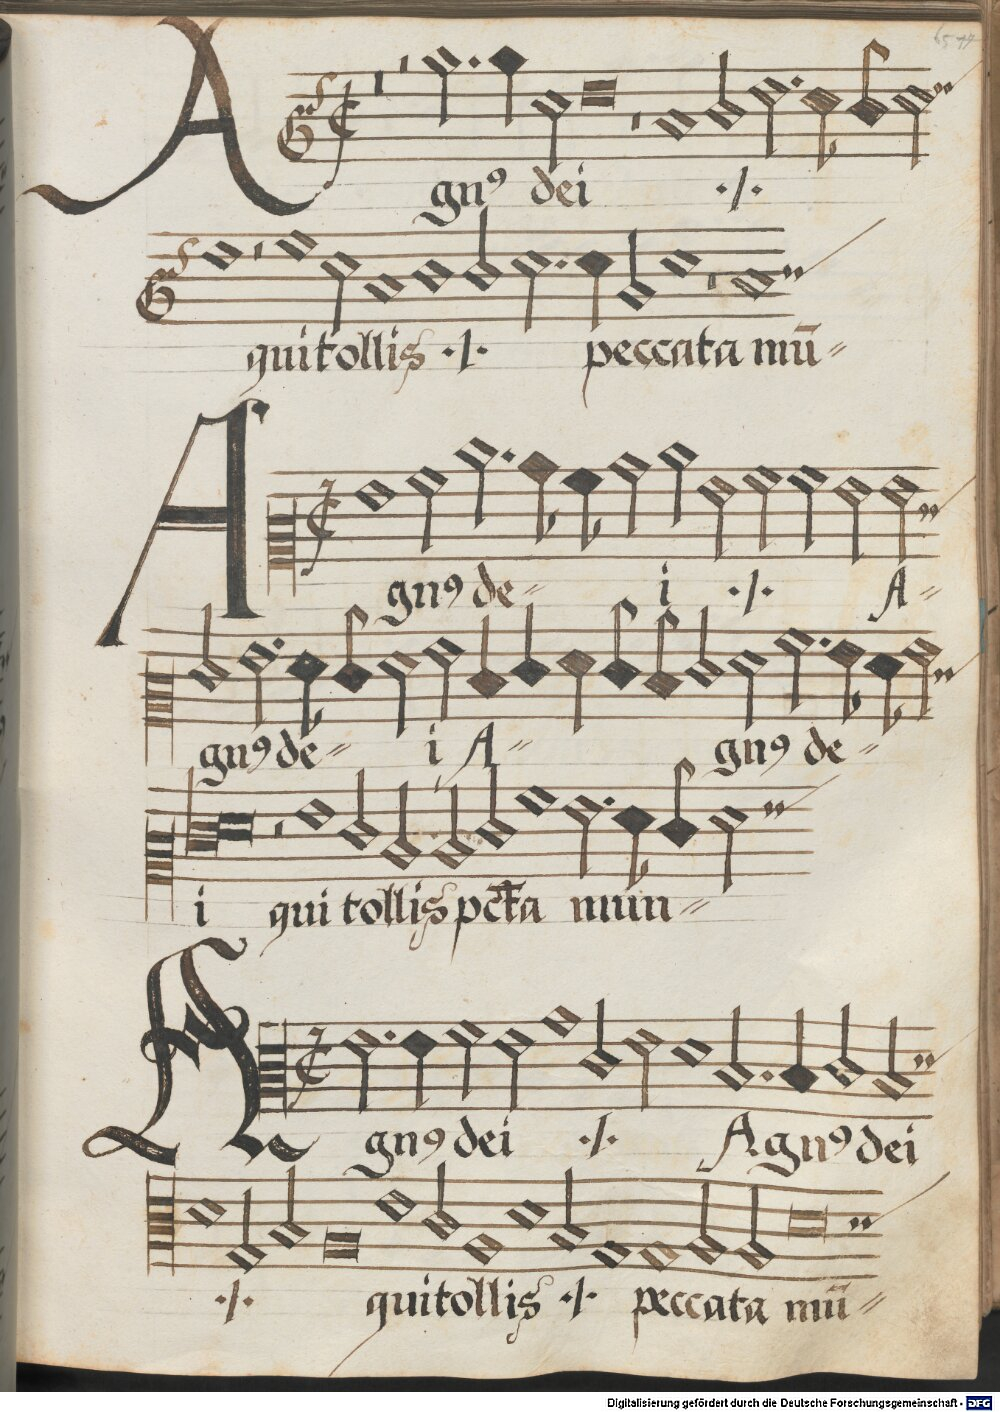 Agnꝰ dei ·/·
qui tollis ·/· peccata mū⸗
Agnꝰ de⸗ i ·/· A⸗
gnꝰ de⸗ i A⸗ gnꝰ de⸗
i qui tollis pc̄ta mun⸗
Agnꝰ dei ·/· Agnꝰ dei
·/· qui tollis ·/· peccata mū⸗
Digitalisierung gefördert durch die Deutsche Forschungsgemeinschaft - DFG